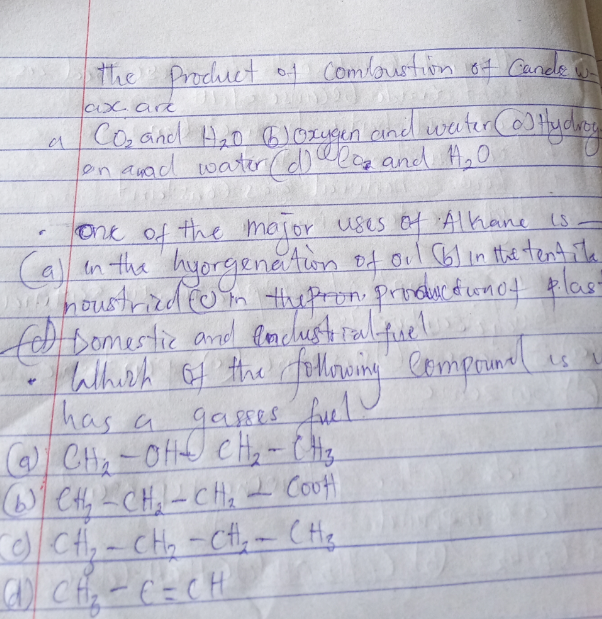 the product of Combustion of Cande w-
ax are
a CO₂ and H₂O (b) Oxygen and water (c) Hydrog
en and water (d) CO₂ and H₂O
• one of the major uses of Alkane is —
(a) in tha hyorgenation of oil (b) in the textile
noustried (c) in production of plas
(d) Domestic and industrial fuel
• Which of the following Compound is
has a gasses fuel
(a) CH₂ - OH - CH₂ - CH₃
(b) CH₃ - CH₂ - CH₂ - COOH
(c) CH₃ - CH₂ - CH₂ - CH₃
(d) CH₃ - C = CH